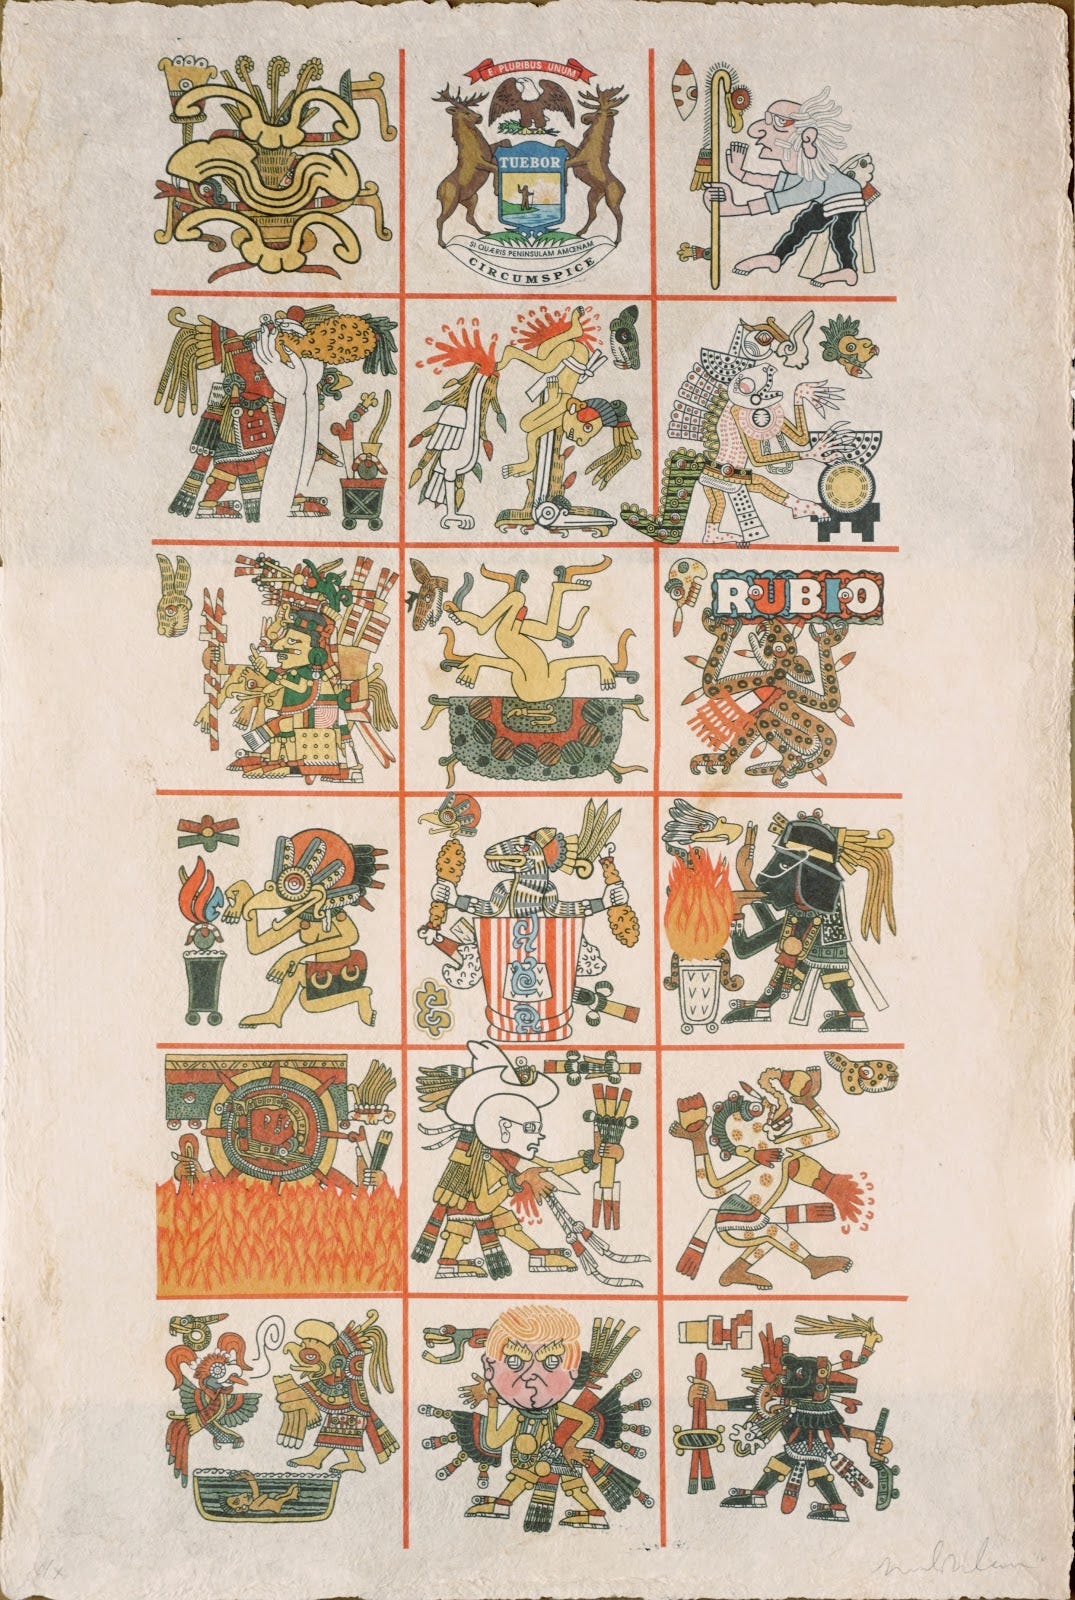 E PLURIBUS UNUM
TUEBOR
SI QUÆRIS PENINSULAM AMŒNAM
CIRCUMSPICE
RUBIO